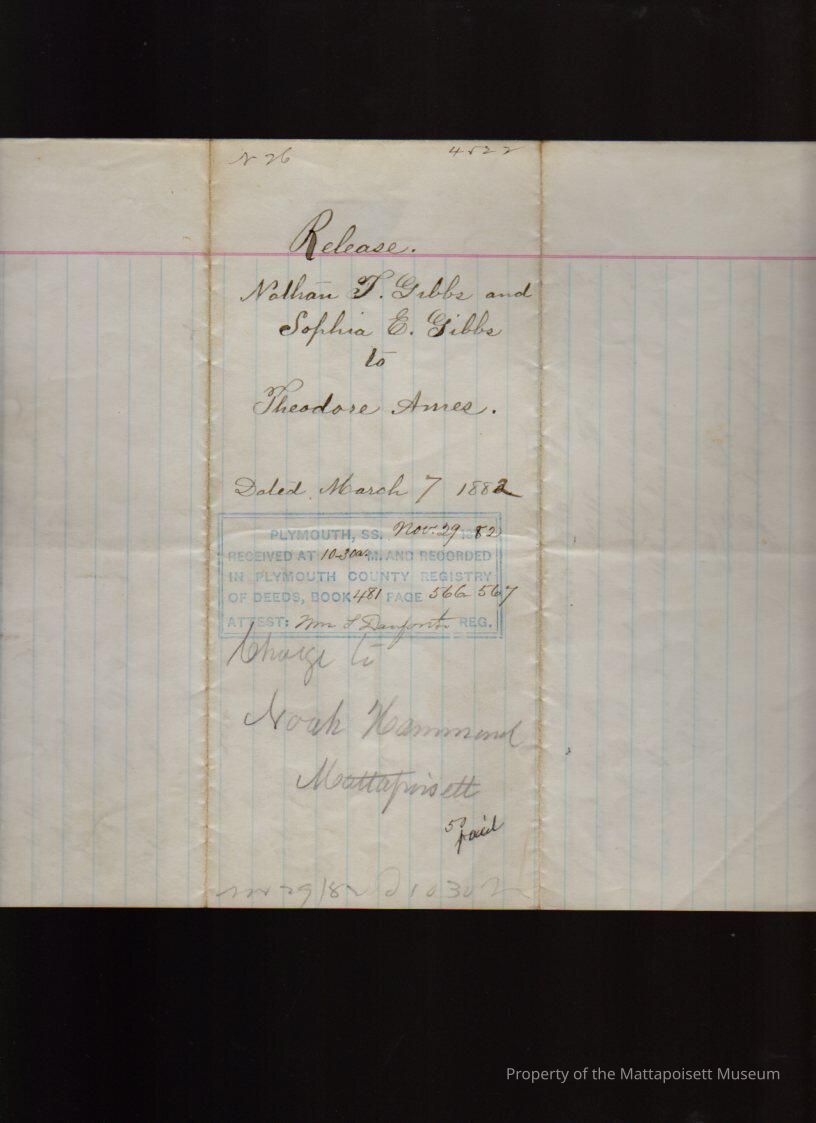 N 26 4522
Release.
Nathan T. Gibbs and
Sophia E. Gibbs
to
Theodore Ames.
Dated March 7 1882
PLYMOUTH, SS. Nov. 29 1882
RECEIVED AT 10-30 a M. AND RECORDED
IN PLYMOUTH COUNTY REGISTRY
OF DEEDS, BOOK 481 PAGE 566 567
ATTEST: Wm S Danforth REG.
Charge to
Noah Hammond
Mattapoisett
50 paid
Nov 29/82 10 30
Property of the Mattapoisett Museum